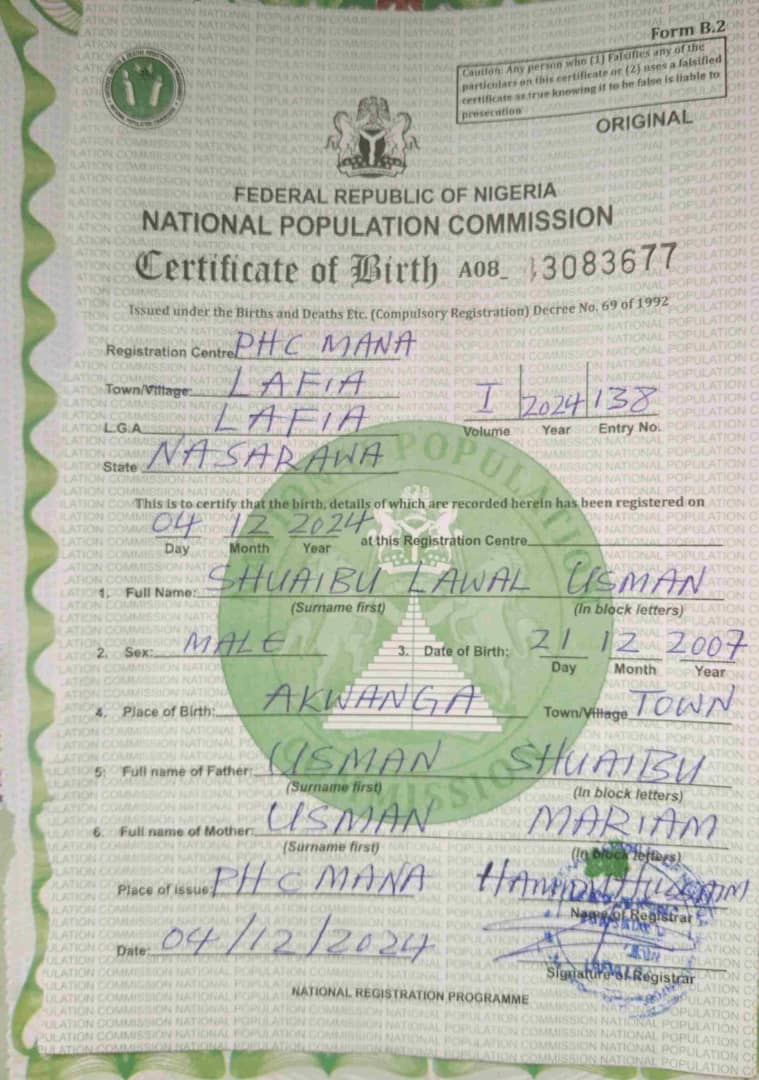 Form B.2
Caution: Any person who (1) Falsifies any of the
particulars on this certificate or (2) uses a falsified
certificate as true knowing it to be false is liable to
prosecution
ORIGINAL
FEDERAL REPUBLIC OF NIGERIA
NATIONAL POPULATION COMMISSION
Certificate of Birth A08_ 13083677
Issued under the Births and Deaths Etc. (Compulsory Registration) Decree No. 69 of 1992
Registration Centre PHC MANA
Town/Village LAFIA
L.G.A LAFIA
I 2024 138
Volume Year Entry No.
State NASARAWA
This is to certify that the birth, details of which are recorded herein has been registered on
04 12 2024 at this Registration Centre
Day Month Year
1. Full Name: SHUAIBU LAWAL USMAN
(Surname first) (In block letters)
2. Sex: MALE 3. Date of Birth: 21 12 2007
Day Month Year
4. Place of Birth: AKWANGA Town/Village TOWN
5: Full name of Father: USMAN SHUAIBU
(Surname first) (In block letters)
6. Full name of Mother: USMAN MARIAM
(Surname first) (In block letters)
Place of issue: PHC MANA
Name of Registrar
Date: 04/12/2024
Signature of Registrar
NATIONAL REGISTRATION PROGRAMME